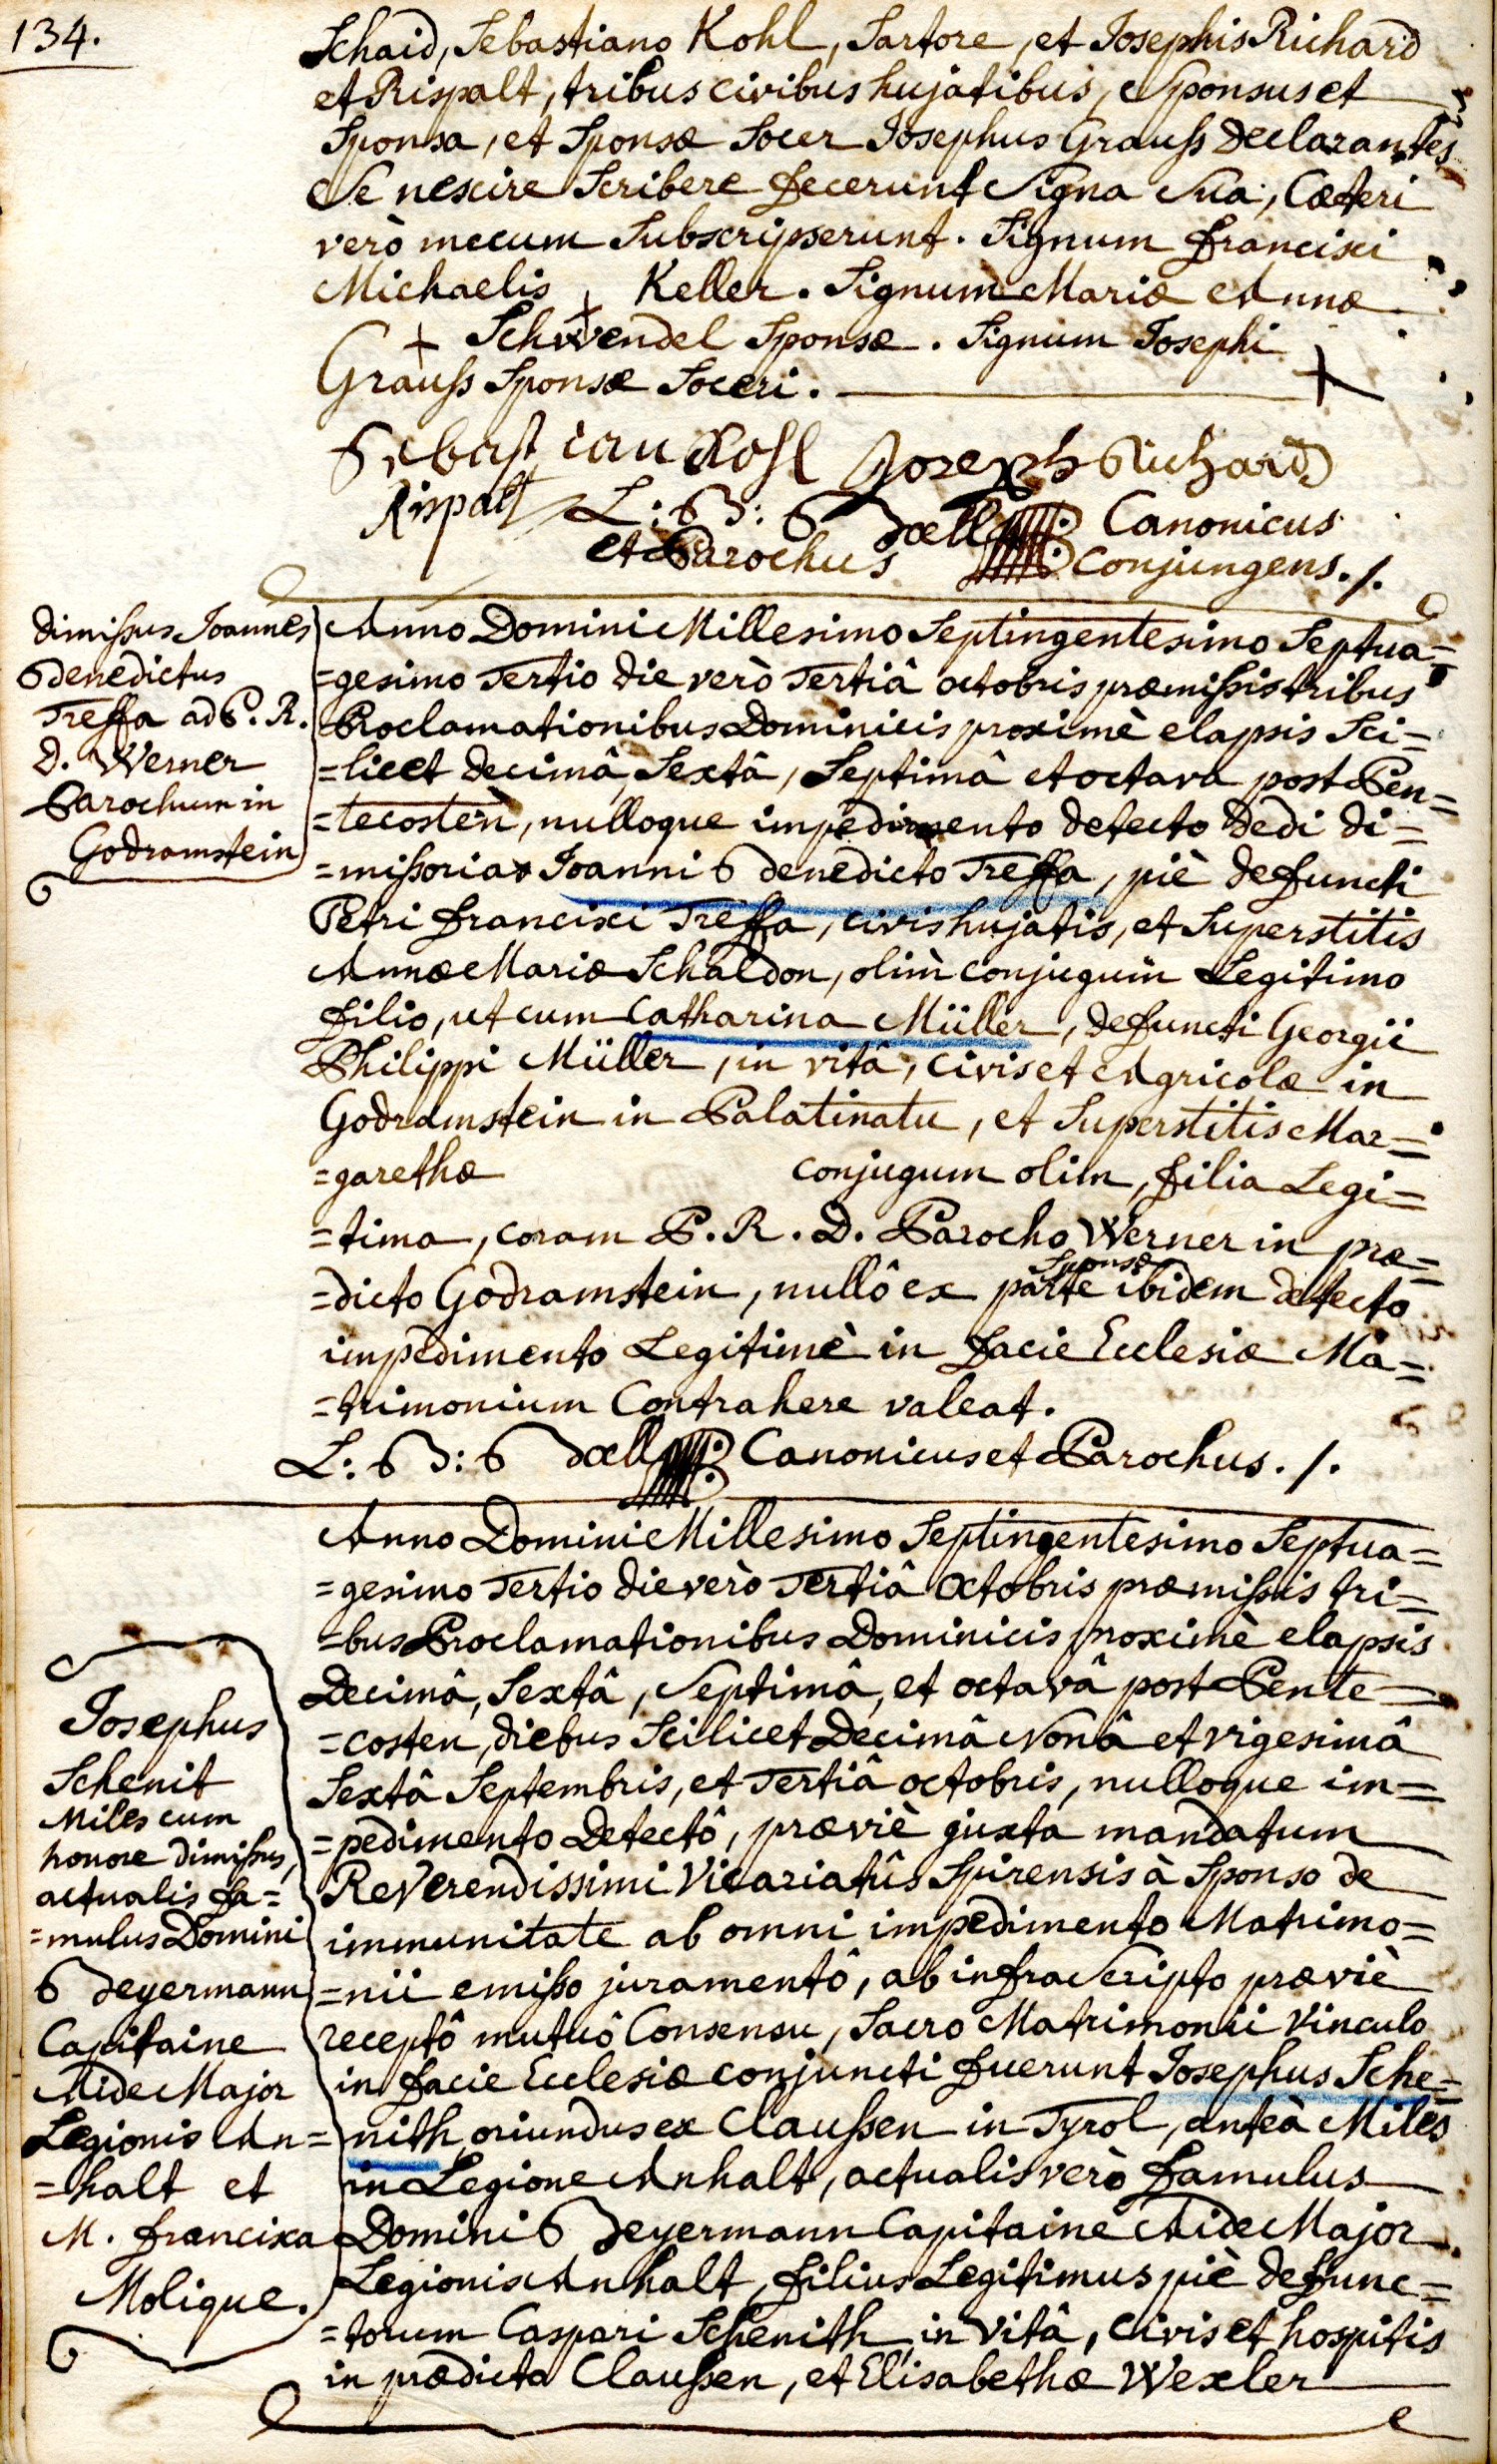 134.
Schaid, Sebastiano Kohl, Sartore, et Josephis Richard
et Rispalt, tribus civibus hujatibus, Sponsus et
Sponsa, et Sponsæ Socer Josephus Grauss declarantes
Se nescire Scribere fecerunt Signa Sua, Cæteri
verò mecum Subscripserunt. Signum francisci
Michaelis + Keller. Signum Mariæ Annæ
+ Schwendel Sponsæ. Signum Josephi
Grauss Sponsæ Soceri. +
Sebastian Kohl Joseph Richard
Rispalt L: B: Bdell Canonicus
et Parochus conjungens./.
dimissus Joannes
Benedictus
Treffa ad P. R.
D. Werner
Parochum in
Godramstein
Anno Domini Millesimo Septingentesimo Septua=
=gesimo Tertio die verò Tertiâ octobris præmissis tribus
Proclamationibus Dominicis proximè elapsis Sci=
=licet decimâ Sextâ, Septimâ et octava post Pen=
=tecosten, nulloque impedimento detecto dedi di=
=missorias Joanni Benedicto Treffa, piè defuncti
Petri francisci Treffa, civis hujatis, et Superstitis
Annæ Mariæ Schaldon, olim conjugum Legitimo
filio, ut cum Catharina Müller, defuncti Georgii
Philippi Müller, in vitâ, civis et Agricolæ in
Godramstein in Palatinatu, et Superstitis Mar=
=garethæ conjugum olim, filia Legi=
=tima, coram P. R. D. Parocho Werner in præ=
Sponsæ
=dicto Godramstein, nullô ex parte ibidem detecto
impedimento Legitimè in facie Ecclesiæ Ma=
=trimonium Contrahere valeat.
L: B: Bdell Canonicus et Parochus./.
Josephus
Schenit
Miles cum
honore dimissus,
actualis fa=
=mulus Domini
Beyermann
Capitaine
Aide Major
Legionis An=
=halt et
M. francisca
Molique.
Anno Domini Millesimo Septingentesimo Septua=
=gesimo Tertio die verò Tertiâ Octobris præmissis tri=
=bus Proclamationibus Dominicis proximè elapsis
Decimâ, Sextâ, Septimâ, et octavâ post Pente=
=costen, diebus Scilicet Decimâ Nonâ et vigesimâ
Sextâ Septembris, et Tertiâ octobris, nulloque im=
=pedimento Detectô, præviè juxta mandatum
Reverendissimi Vicariatûs Spirensis à Sponso de
immunitate ab omni impedimento Matrimo=
=nii emisso juramentô, ab infra Scripto præviè
receptô mutuô Consensu, Sacro Matrimonii Vinculo
in facie Ecclesiæ conjuncti fuerunt Josephus Sche=
=nith, oriundus ex Claussen in Tyrol, anteà Miles
in Legione Anhalt, actualis verò famulus
Domini Beyermann Capitaine Aide Major
Legionis Anhalt, filius Legitimus piè defunc=
=torum Caspari Schenith, in vitâ, civis et hospitis
in prædicto Claussen, et Elisabethæ Wexler